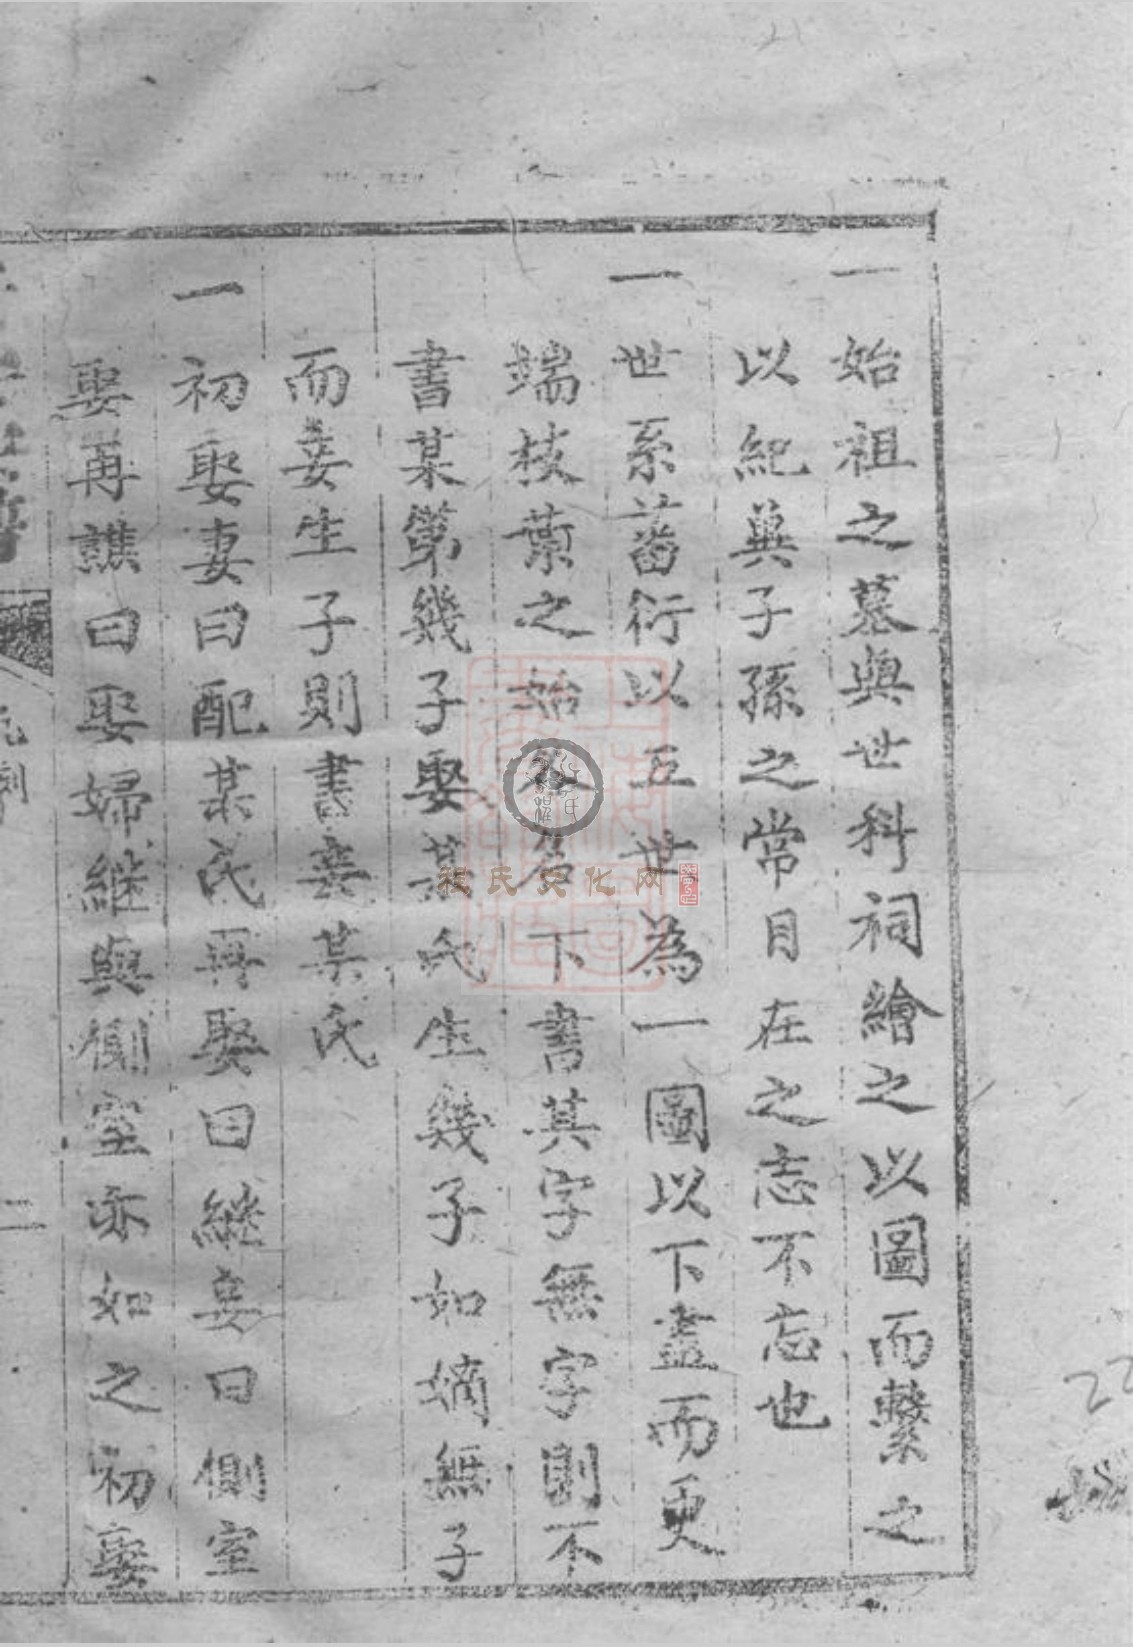 一始祖之墓與世科祠繪之以圖而繫之
以紀異子孫之常目在之志不忘也
一世系蕃衍以五世為一圖以下盡而更
端枝葉之始 名下書其字無字則不
書某第幾子娶某氏生幾子如嫡無子
而妾生子則書妾某氏
一初娶妻曰配某氏再娶曰繼妾曰側室
娶再譙曰娶婦繼與側室亦如之初娶
二
程氏文化网
22